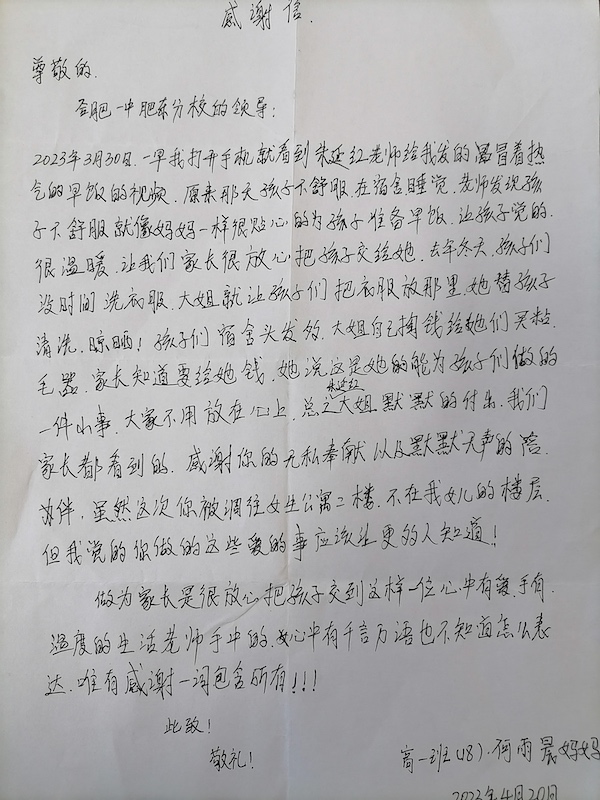 感谢信.
尊敬的.
合肥一中肥东分校的领导：
2023年3月30日.一早我打开手机就看到朱延红老师给我发的冒着热
气的早饭的视频.原来那天孩子不舒服.在宿舍睡觉.老师发现孩
子不舒服就像妈妈一样很贴心的为孩子准备早饭.让孩子觉的.
很温暖.让我们家长很放心把孩子交给她.去年冬天.孩子们
没时间洗衣服.大姐就让孩子们把衣服放那里.她替孩子
清洗.晾晒！孩子们宿舍头发多.大姐自己掏钱给她们买粘.
毛器.家长知道要给她钱.她说这是她的能为孩子们做的
一件小事.大家不用放在心上.总之朱延红大姐默默的付出.我们
家长都看到的.感谢你的无私奉献以及默默无声的陪.
伴.虽然这次你被调往女生公寓二楼.不在我女儿的楼层.
但我觉的你做的这些爱的事应该让更多的人知道！
做为家长是很放心把孩子交到这样一位心中有爱.手有.
温度的生活老师手中的.心中有千言万语也不知道怎么表
达.唯有感谢一词包含所有！！！
此致！
敬礼！
高一班(18).何雨晨妈妈
2023年4月20日